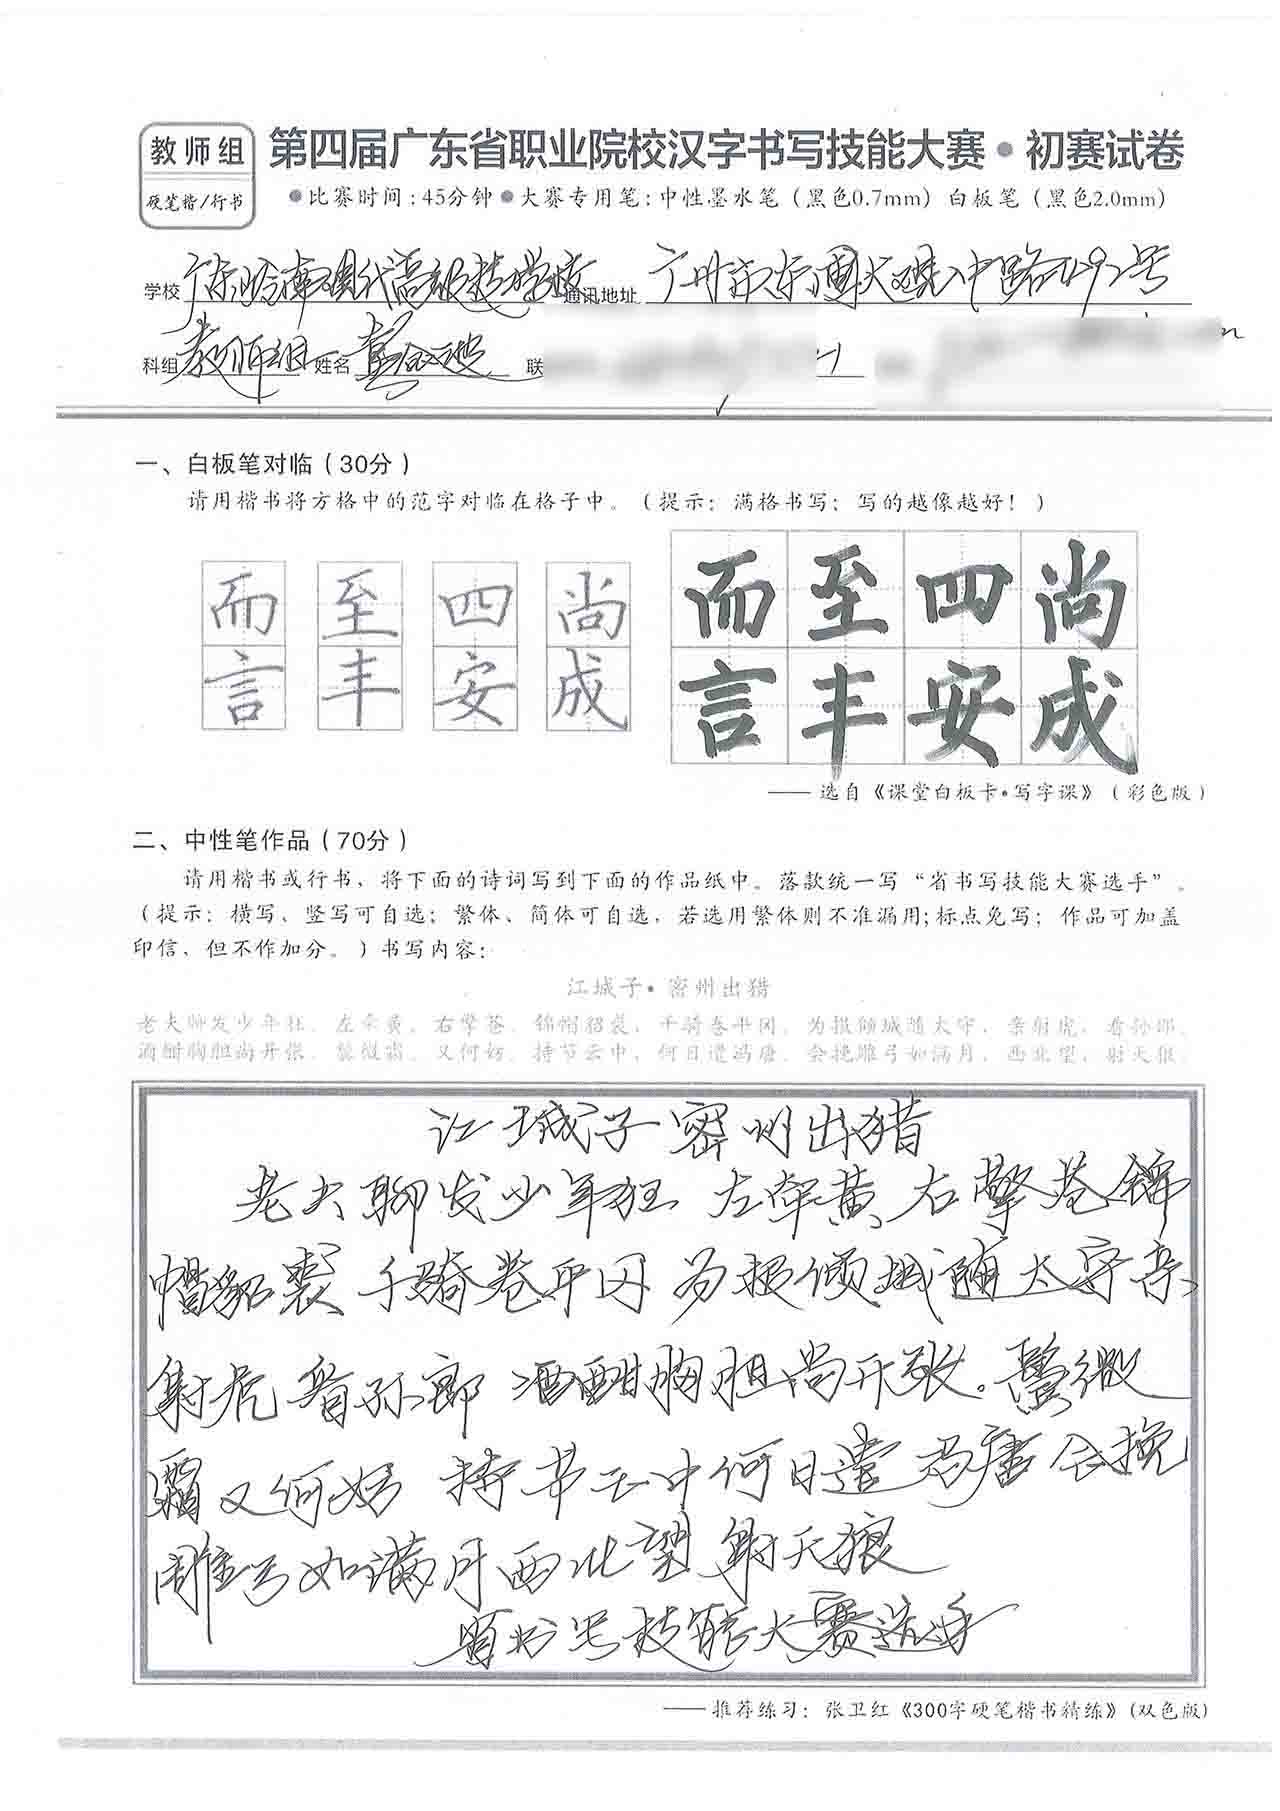 教师组
硬笔楷/行书
第四届广东省职业院校汉字书写技能大赛·初赛试卷
●比赛时间:45分钟●大赛专用笔:中性墨水笔(黑色0.7mm)白板笔(黑色2.0mm)
学校 广东岭南现代高级技工学校 通讯地址 广州市东圃大观中路492号
科组 教师组 姓名 联
一、白板笔对临(30分)
请用楷书将方格中的范字对临在格子中。(提示:满格书写;写的越像越好!)
而 至 四 尚 而 至 四 尚
言 丰 安 成 言 丰 安 成
——选自《课堂白板卡·写字课》(彩色版)
二、中性笔作品(70分)
请用楷书或行书,将下面的诗词写到下面的作品纸中。落款统一写“省书写技能大赛选手”。
(提示:横写、竖写可自选;繁体、简体可自选,若选用繁体则不准漏用;标点免写;作品可加盖
印信、但不作加分。)书写内容:
江城子·密州出猎
老夫聊发少年狂,左牵黄,右擎苍,锦帽貂裘,千骑卷平冈。为报倾城随太守,亲射虎,看孙郎。
酒酣胸胆尚开张。鬓微霜,又何妨。持节云中,何日遣冯唐。会挽雕弓如满月,西北望,射天狼。
江城子密州出猎
老夫聊发少年狂 左牵黄 右擎苍 锦
帽貂裘 千骑卷平冈 为报倾城随太守亲
射虎 看孙郎 酒酣胸胆尚开张。鬓微
霜又何妨 持节云中何日遣冯唐 会挽
雕弓如满月西北望 射天狼
省书写技能大赛选手
——推荐练习:张卫红《300字硬笔楷书精练》(双色版)